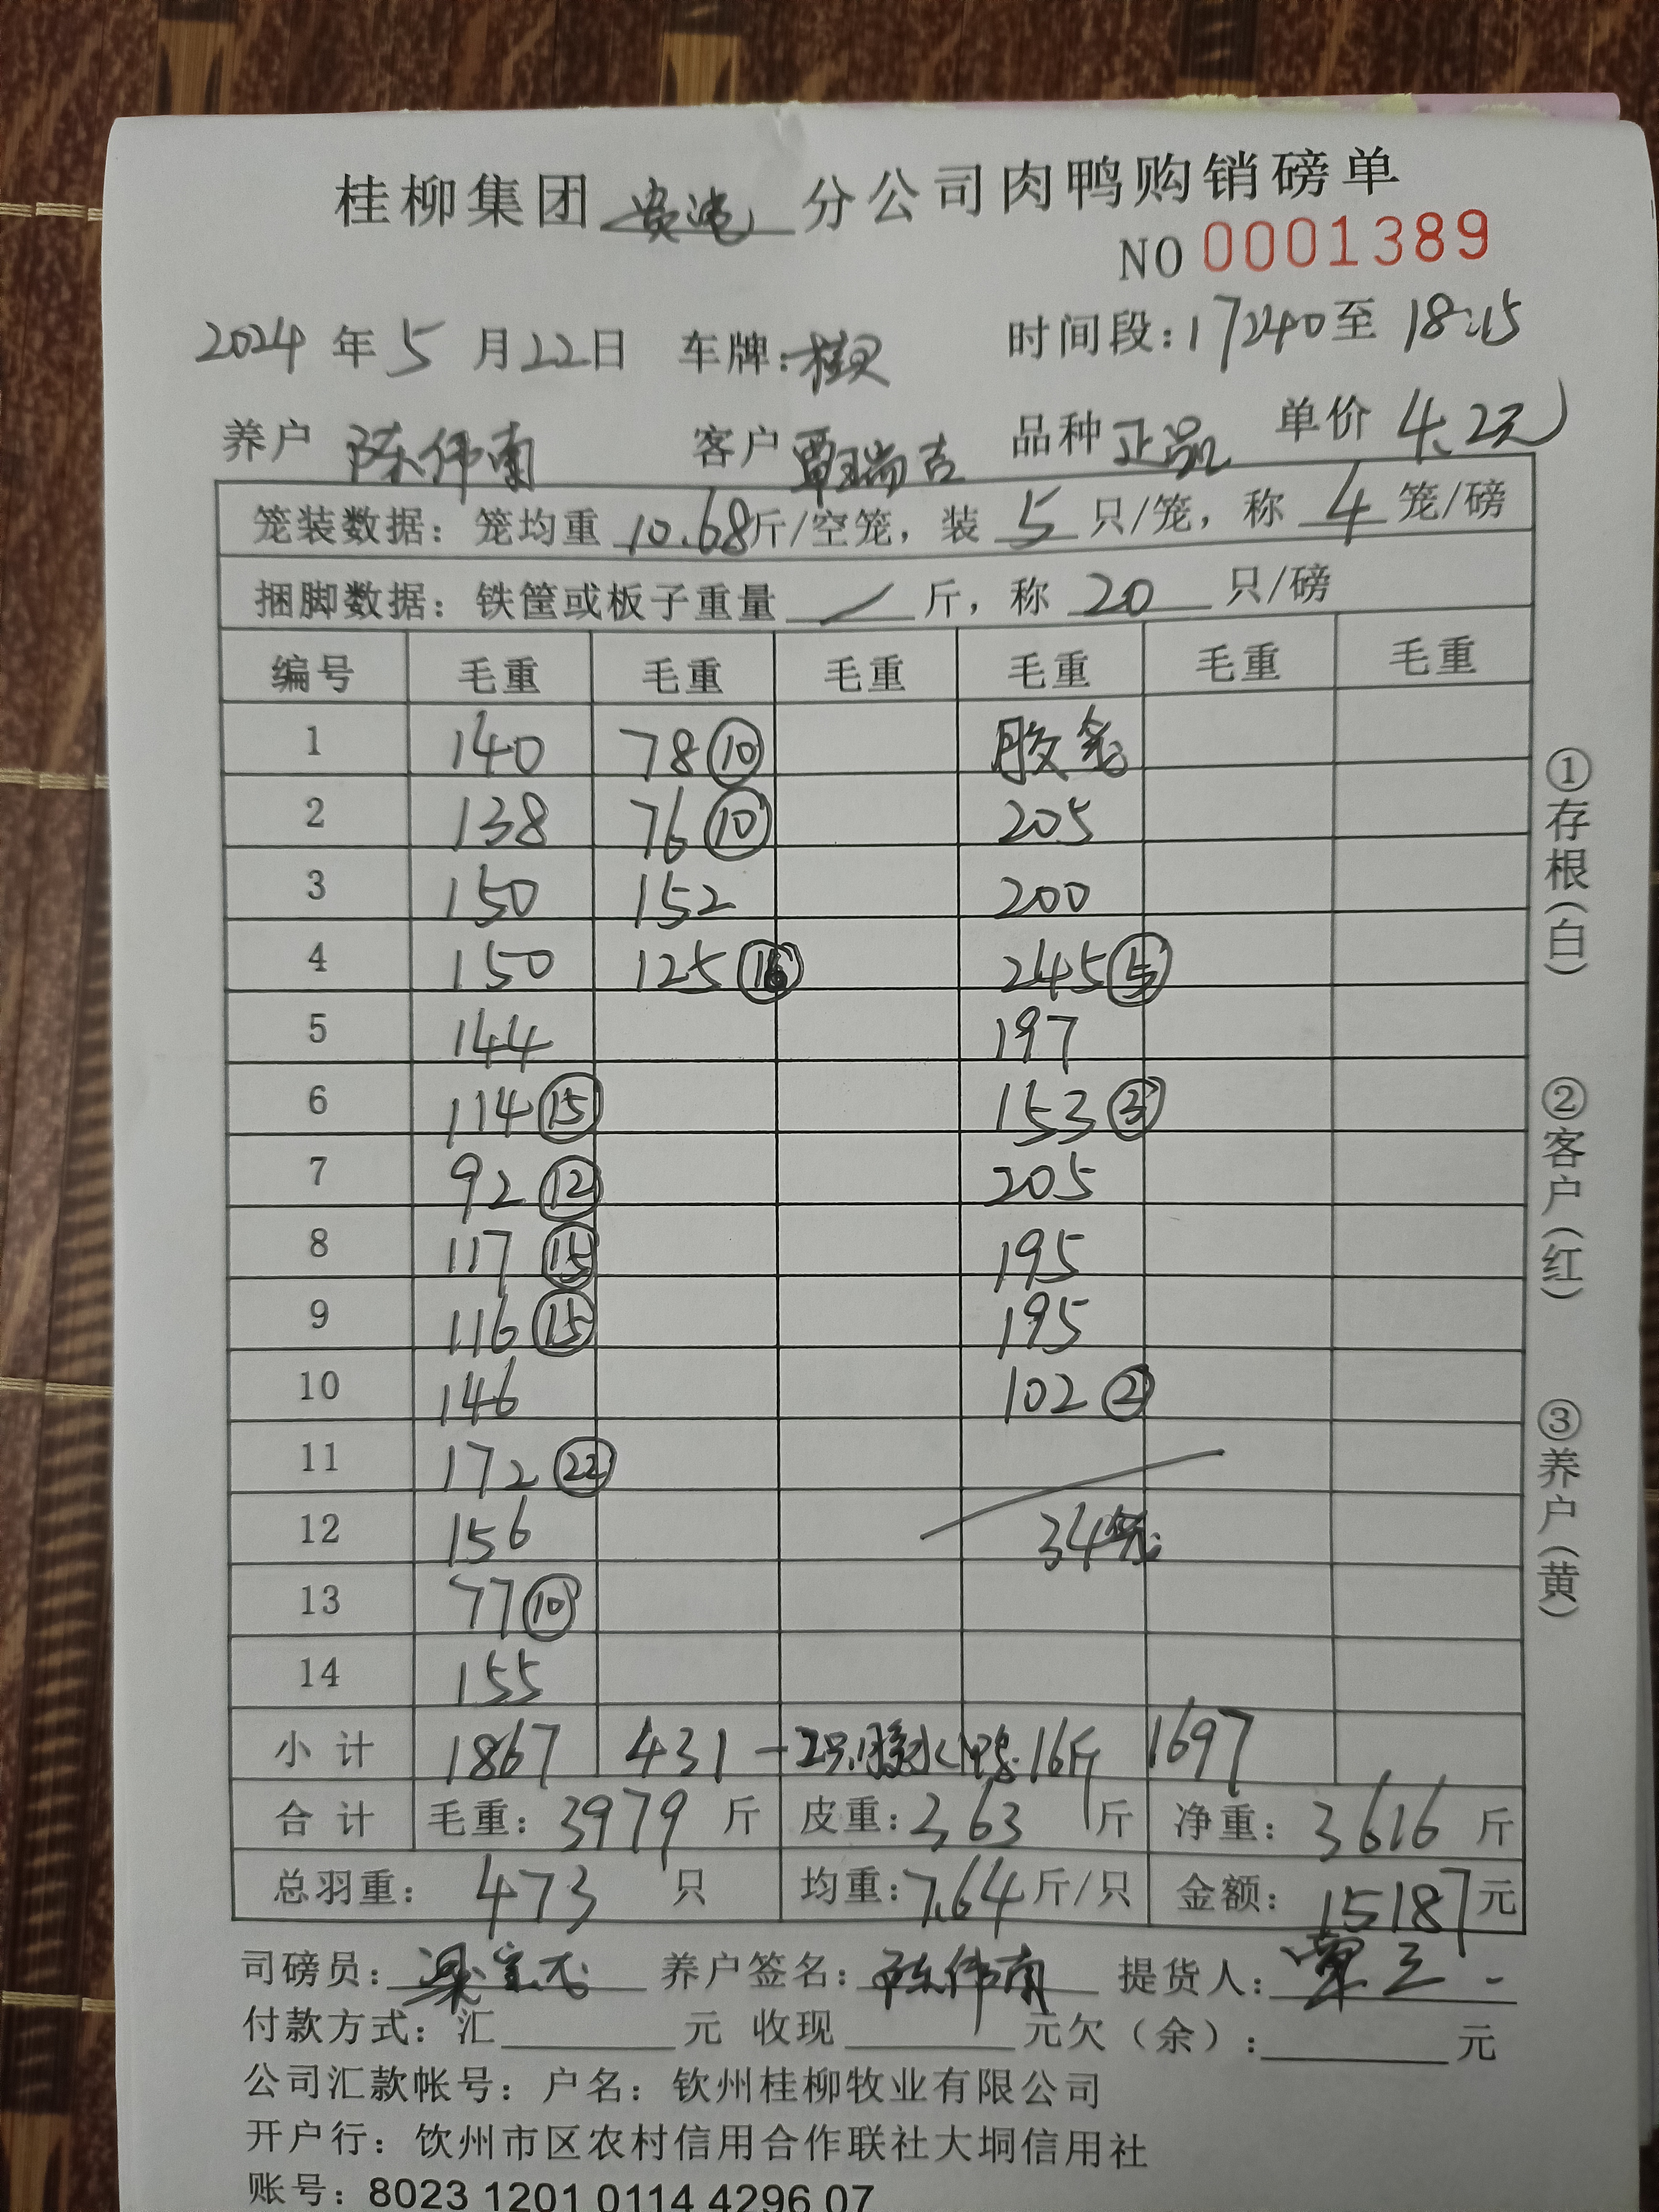 桂柳集团 分公司肉鸭购销磅单
NO 0001389
2024 年 5 月 22 日 车牌: 时间段: 17:40 至 18:15
养户 陈伟南 客户 覃瑞吉 品种 正品 单价 4.2元
笼装数据: 笼均重 10.68 斤/空笼, 装 5 只/笼, 称 4 笼/磅
捆脚数据: 铁筐或板子重量 / 斤, 称 20 只/磅
编号 毛重 毛重 毛重 毛重 毛重 毛重
1 140 78 ⑩ 胶笼
2 138 76 ⑩ 205
3 150 152 200
4 150 125 ⑯ 245 ⑤
5 144 197
6 114 ⑮ 153 ③
7 92 ⑫ 205
8 117 ⑮ 195
9 116 ⑮ 195
10 146 102 ②
11 172 ㉒
12 156 34笼
13 77 ⑩
14 155
小计 1867 431 -2只 16斤 1697
合计 毛重: 3979 斤 皮重: 363 斤 净重: 3616 斤
总羽重: 473 只 均重: 7.64 斤/只 金额: 15187 元
司磅员: 养户签名: 陈伟南 提货人:
付款方式: 汇 元 收现 元欠(余): 元
公司汇款帐号: 户名: 钦州桂柳牧业有限公司
开户行: 钦州市区农村信用合作联社大垌信用社
账号: 8023 1201 0114 4296 07
①存根(白) ②客户(红) ③养户(黄)